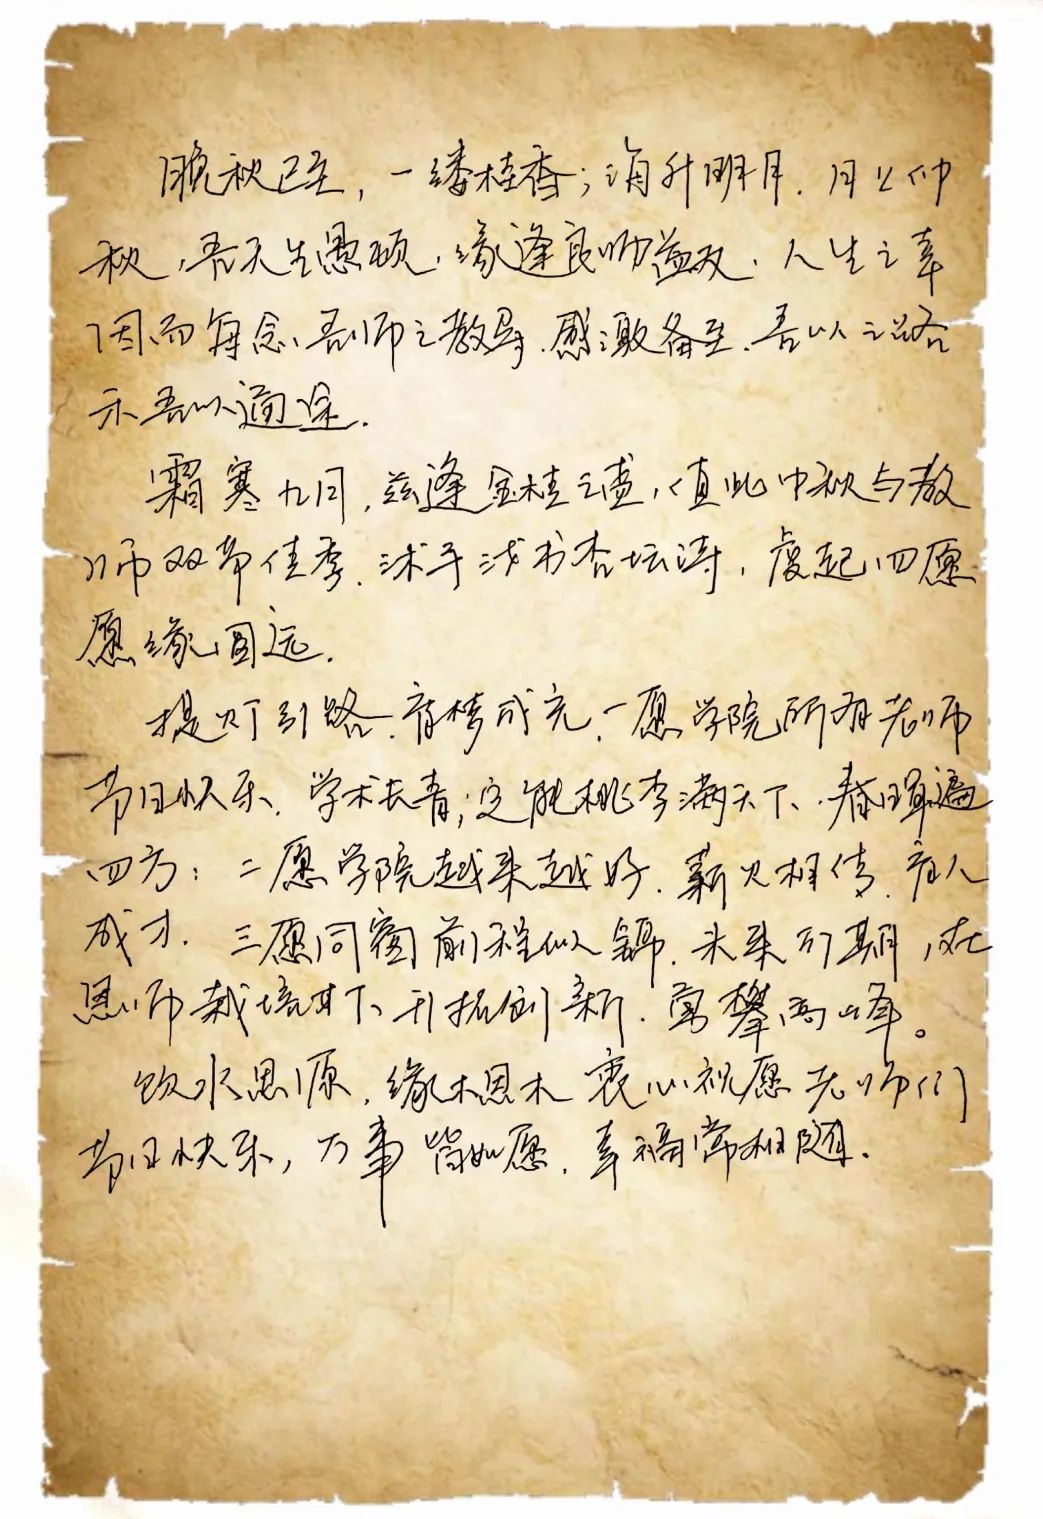 晚秋已至，一缕桂香；海升明月，月公仲
秋，吾天生愚顽，缘逢良师益友，人生之幸
因而每念吾师之教导，感激备至，吾以之路
示吾以通途.
霜寒九月，兹逢金桂之盛，值此中秋与教
师双节佳季，沐手浅书杏坛诗，虔起四愿
愿缘圆远.
提灯引路，育梦成光，一愿学院所有老师
节日快乐、学术长青；定能桃李满天下、春晖遍
四方；二愿学院越来越好，薪火相传，育人
成才. 三愿同窗前程似锦，未来可期，在
恩师栽培其下开拓创新，高攀高峰。
饮水思源，缘木思木 衷心祝愿老师们
节日快乐，万事皆如愿，幸福常相随.